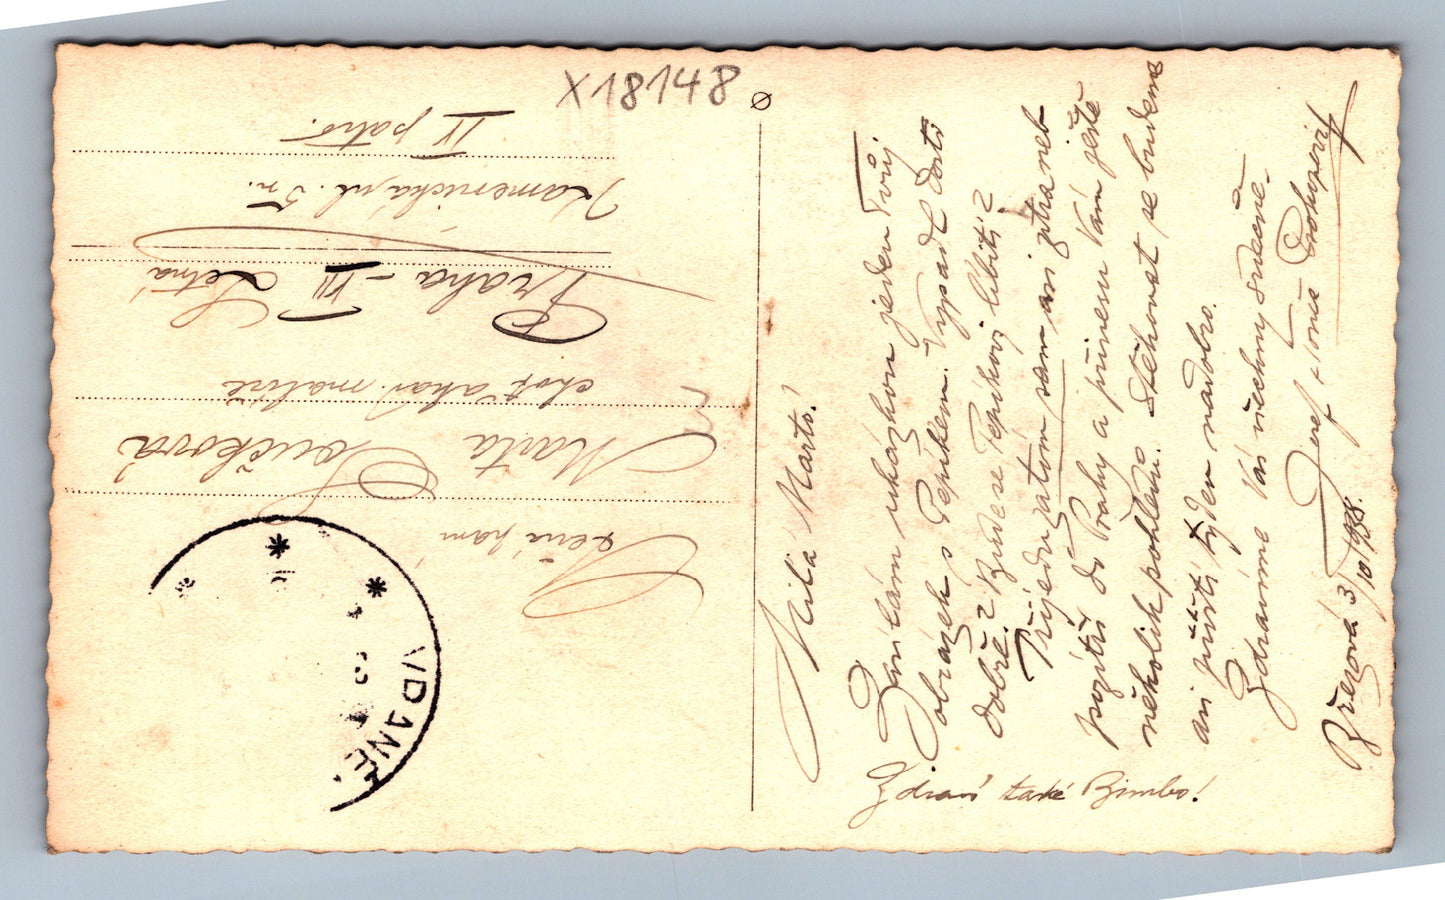 X18148
Milá Marto!
Zasílám ukázkou jeden Tvůj
obrázek s Pepíkem. Vypadl dosti
dobře? Bude se Pepíkovi líbiti?
Přijedu zatím sam asi zítra neb
pozítří do Prahy a přinesu Vám ještě
několik pohledů. Stěhovat se budeme
asi příští týden nadobro.
Zdravíme Vás všechny srdečně.
Josef
Březová 3/10 1938.
Zdraví také Bimbo!
paní
Marta Součková
choť akad. malíře
Praha - VII Letná
Kamenická ul. 5 n.
IV patro.
VDANĚ